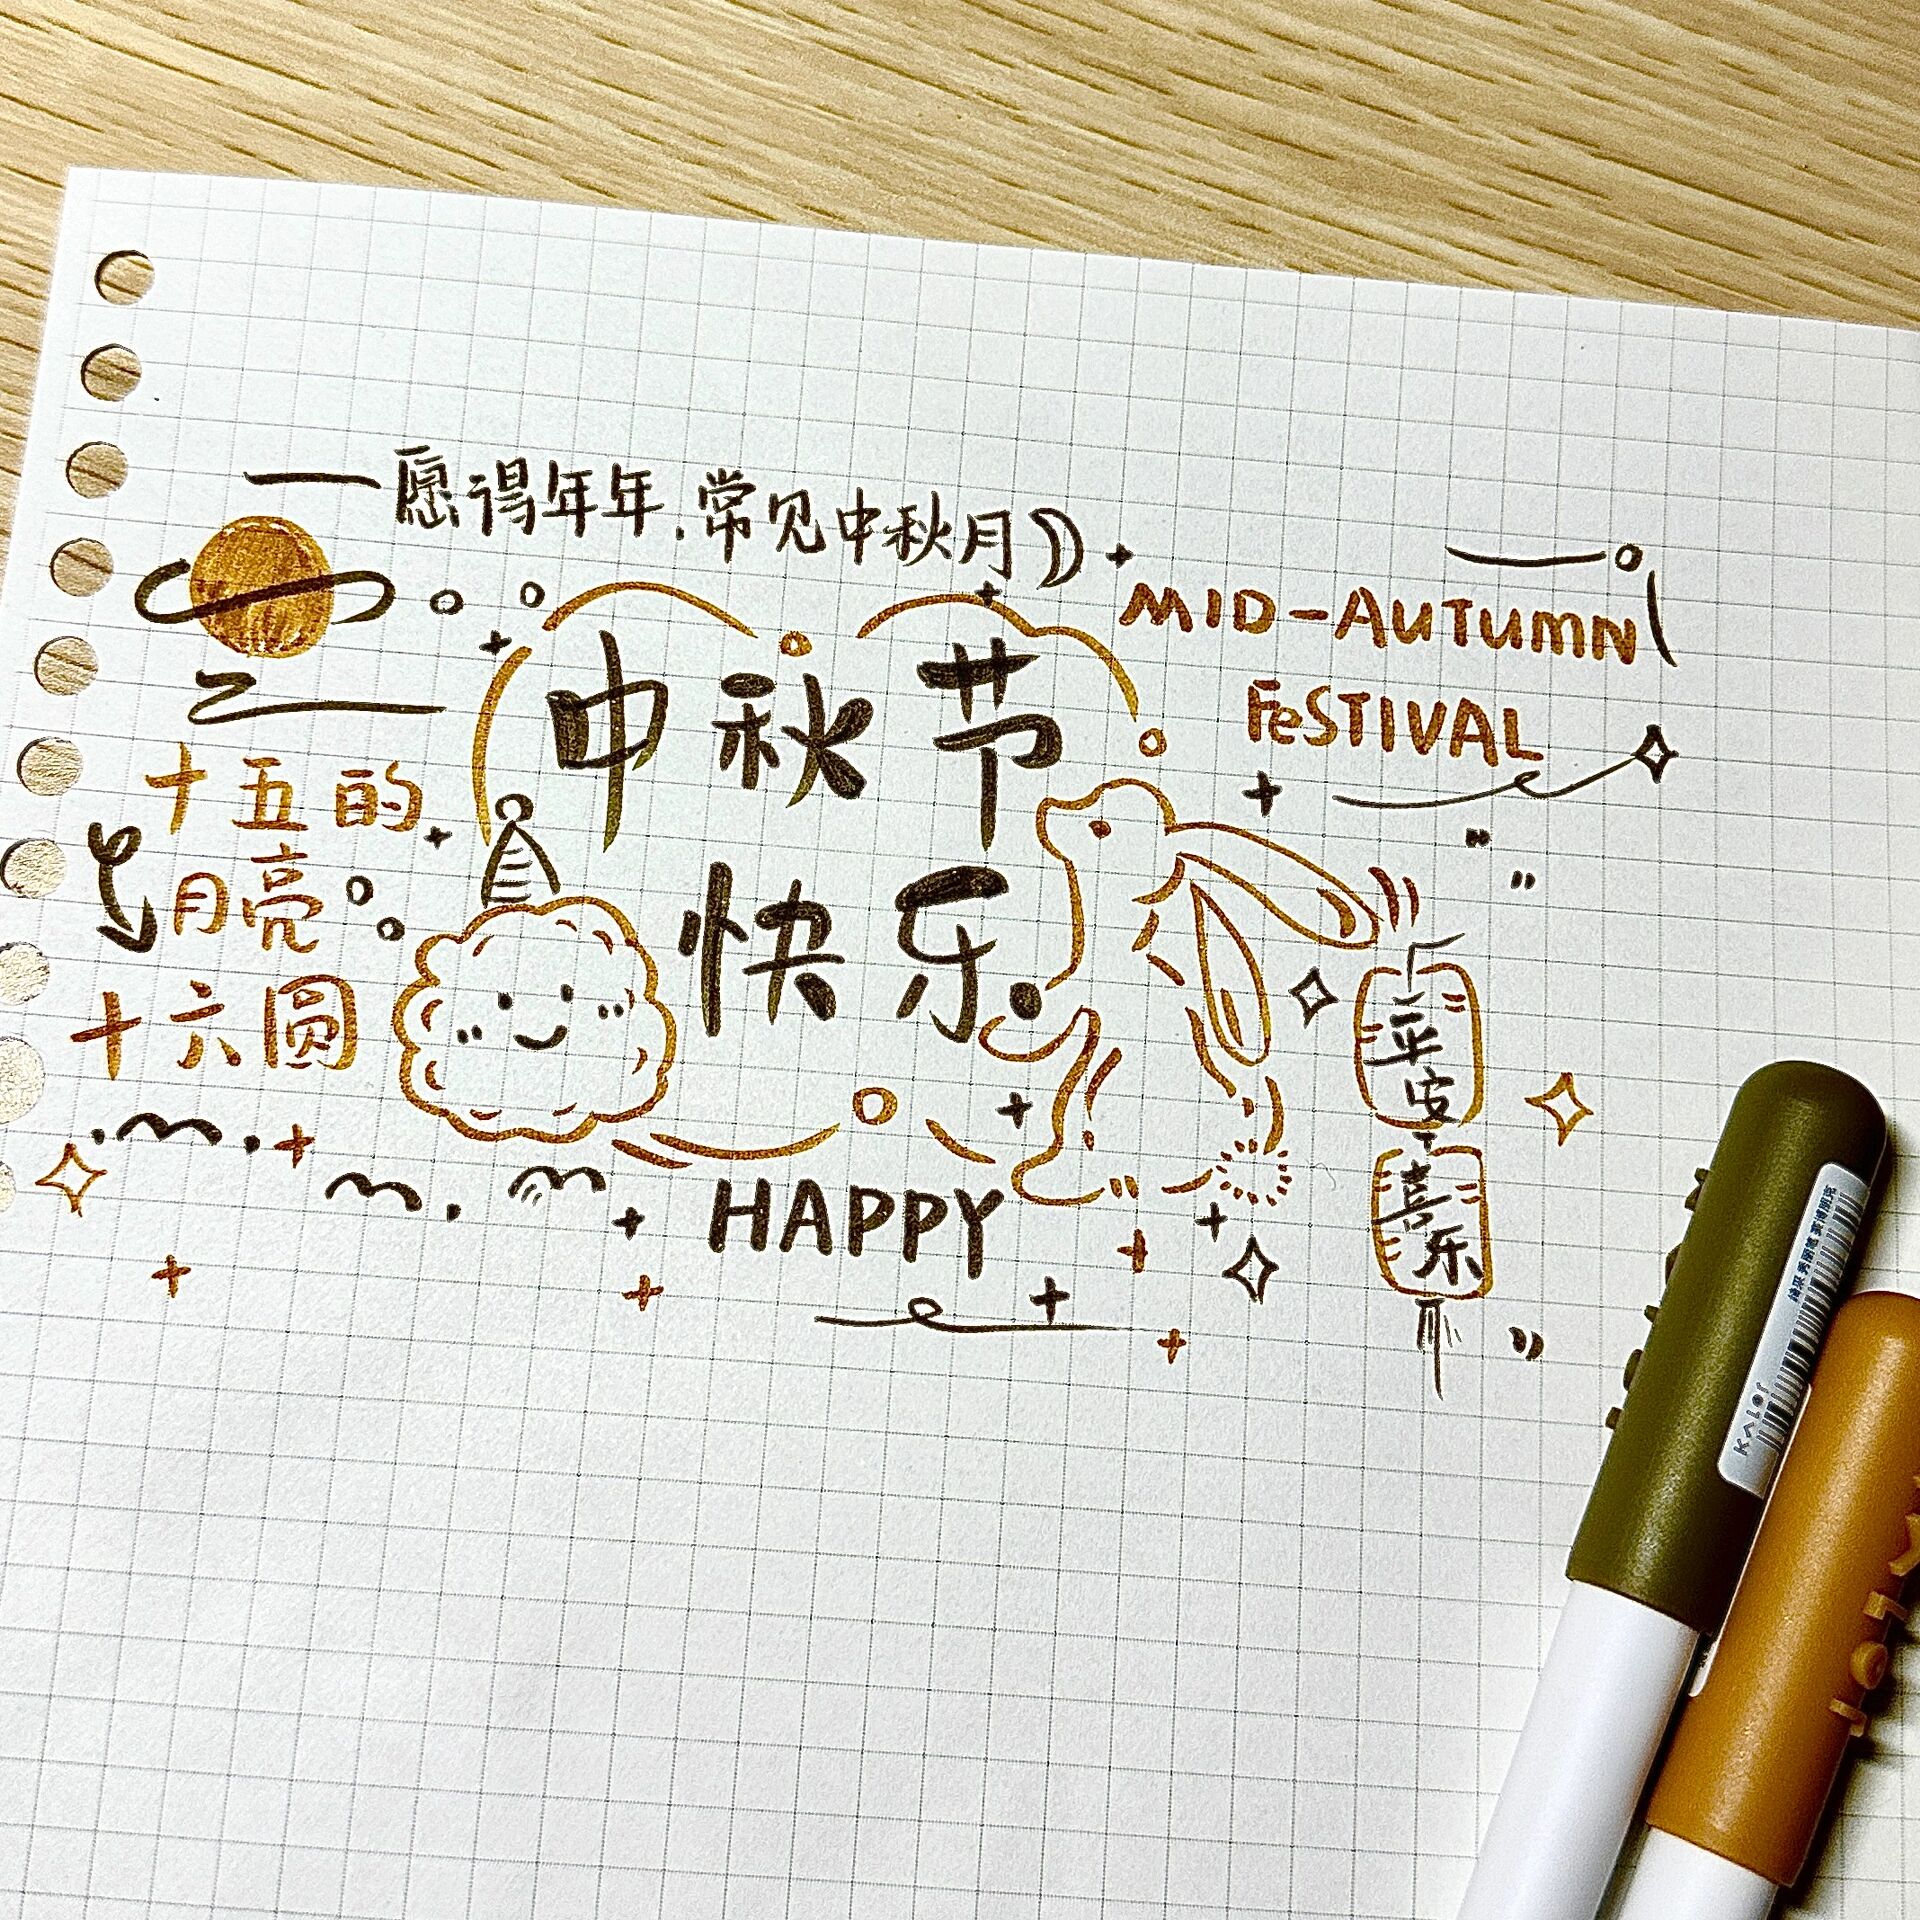 愿得年年,常见中秋月
MID-AUTUMN
FeSTIVAL
中秋节
快乐
十五的
月亮
十六圆
平安
喜乐
HAPPY
KALOr